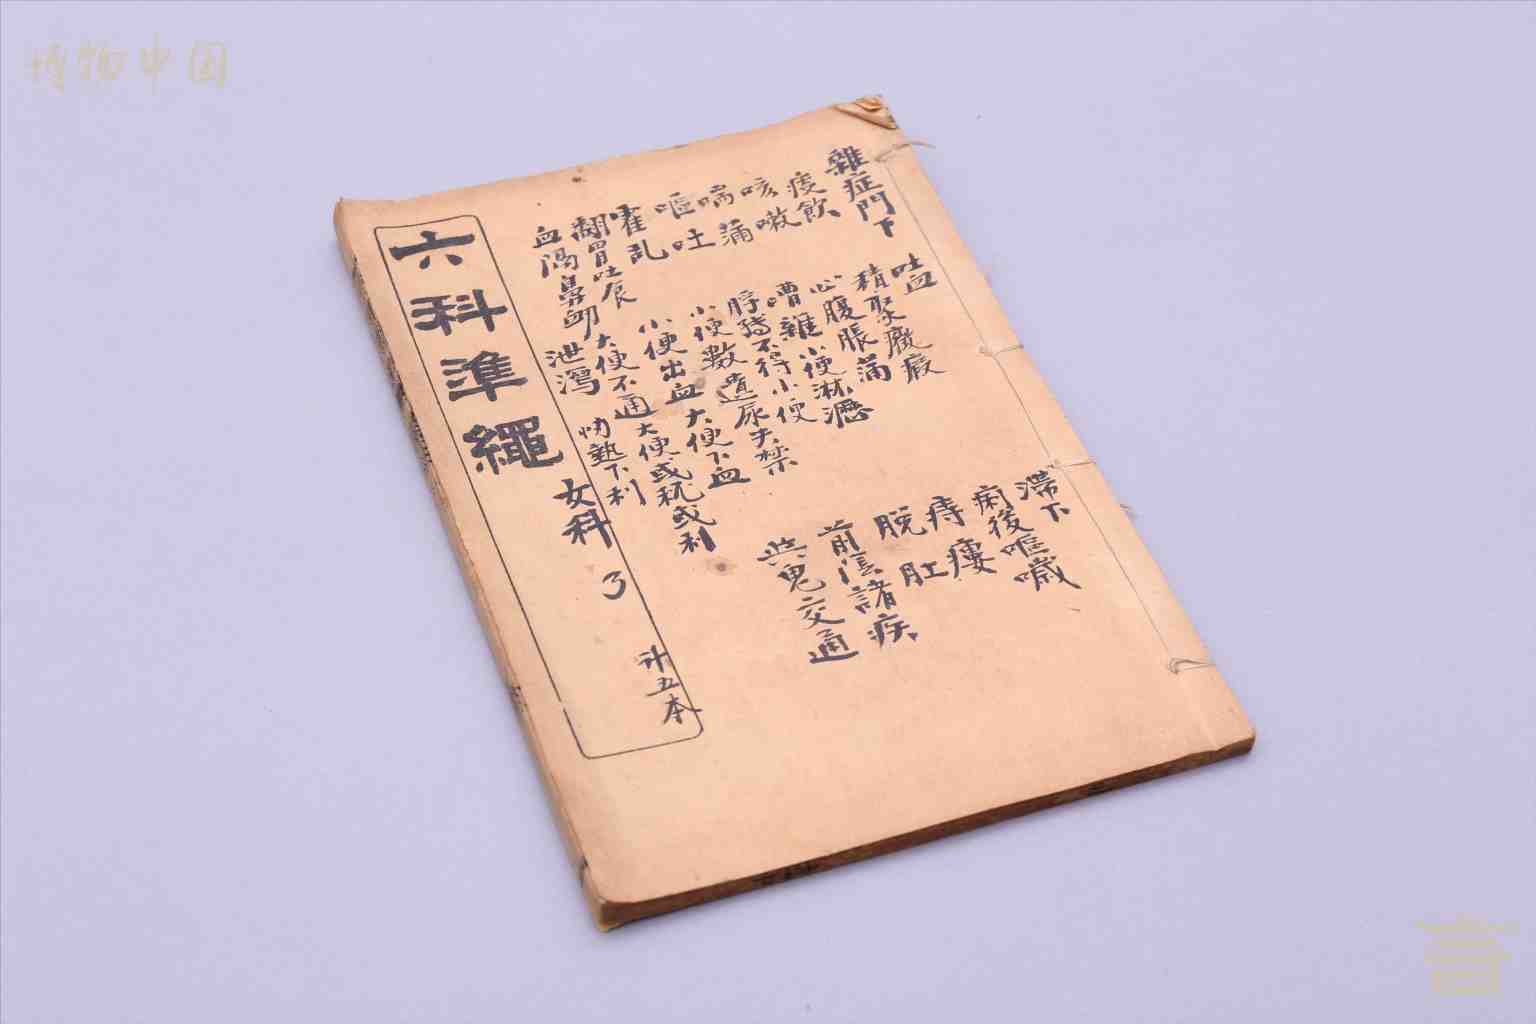 博物中国
雜症門下
痰飲
咳嗽
喘滿
嘔吐
霍乱
翻胃吐食
血隔鼻衂
吐血
積聚癥瘕
心腹脹滿
嘈雜小便淋瀝
脬轉不得小便
小便數遺尿失禁
小便出血大便下血
大便不通大便或秘或利
泄瀉
協熱下利
滯下
痢後嘔噦
痔瘻
脫肛
前陰諸疾
與鬼交通
六科準繩
女科
3
计五本